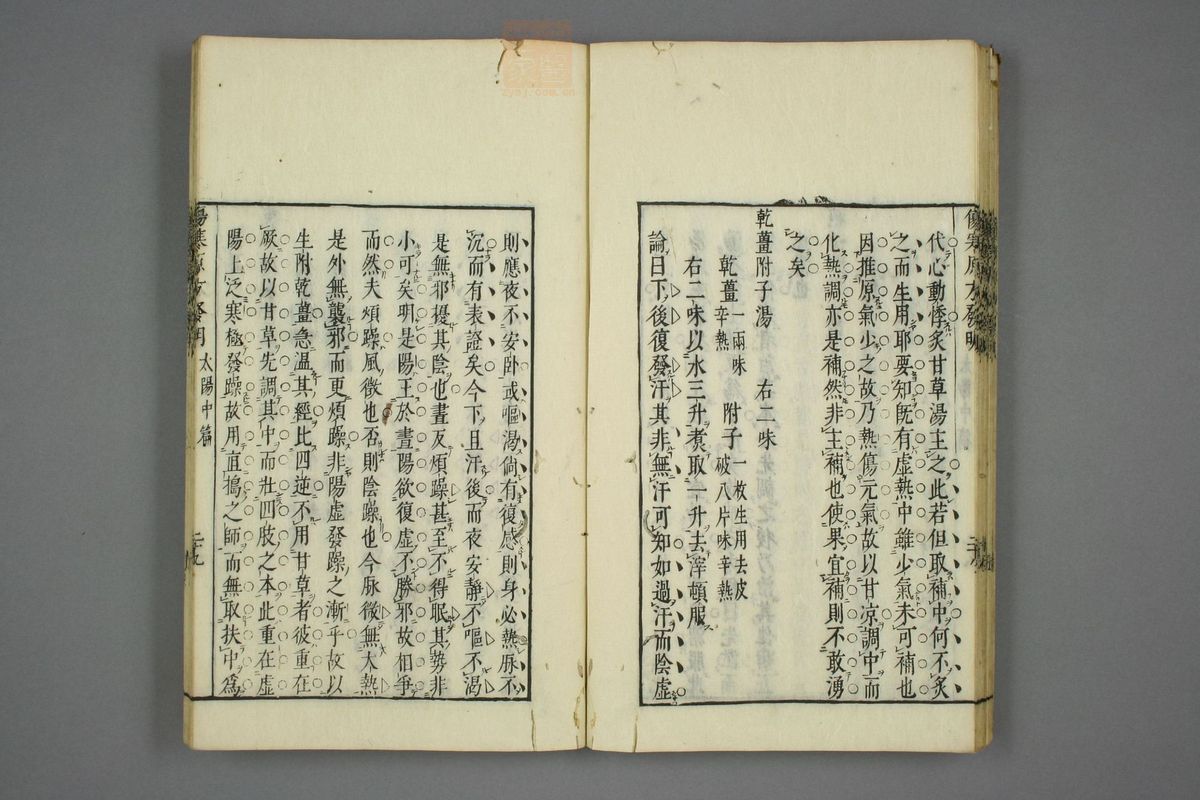 代心動悸炙甘草湯主之此若但取補中何不炙
之而生用耶要知既有虛熱中雖少氣未可補也
因推原氣少之故乃熱傷元氣故以甘凉調中而
化熱調亦是補然非主補也使果宜補則不敢湧
之矣
乾薑附子湯　右二味
乾薑一兩味辛熱　附子一枚生用去皮破八片味辛熱
右二味以水三升煑取一升去滓頓服
論曰下後復發汗其非無汗可知如過汗而陰虛
則應夜不安卧或嘔渴倘有復感則身必熱脉不
沉而有表證矣今下且汗後而夜安靜不嘔不渴
是無邪擾其陰也晝反煩躁甚至不得眠其勢非
小可矣明是陽王於晝陽欲復虛不勝邪故相爭
而然夫煩躁風徵也否則陰躁也今脉微無大熱
是外無襲邪而更煩躁非陽虛發躁之漸乎故以
生附乾薑急温其經比四逆不用甘草者彼重在
厥故以甘草先調其中而壯四肢之本此重在虛
陽上泛寒極發躁故用直搗之師而無取扶中為
太陽中篇
二十九
zysj.com.cn